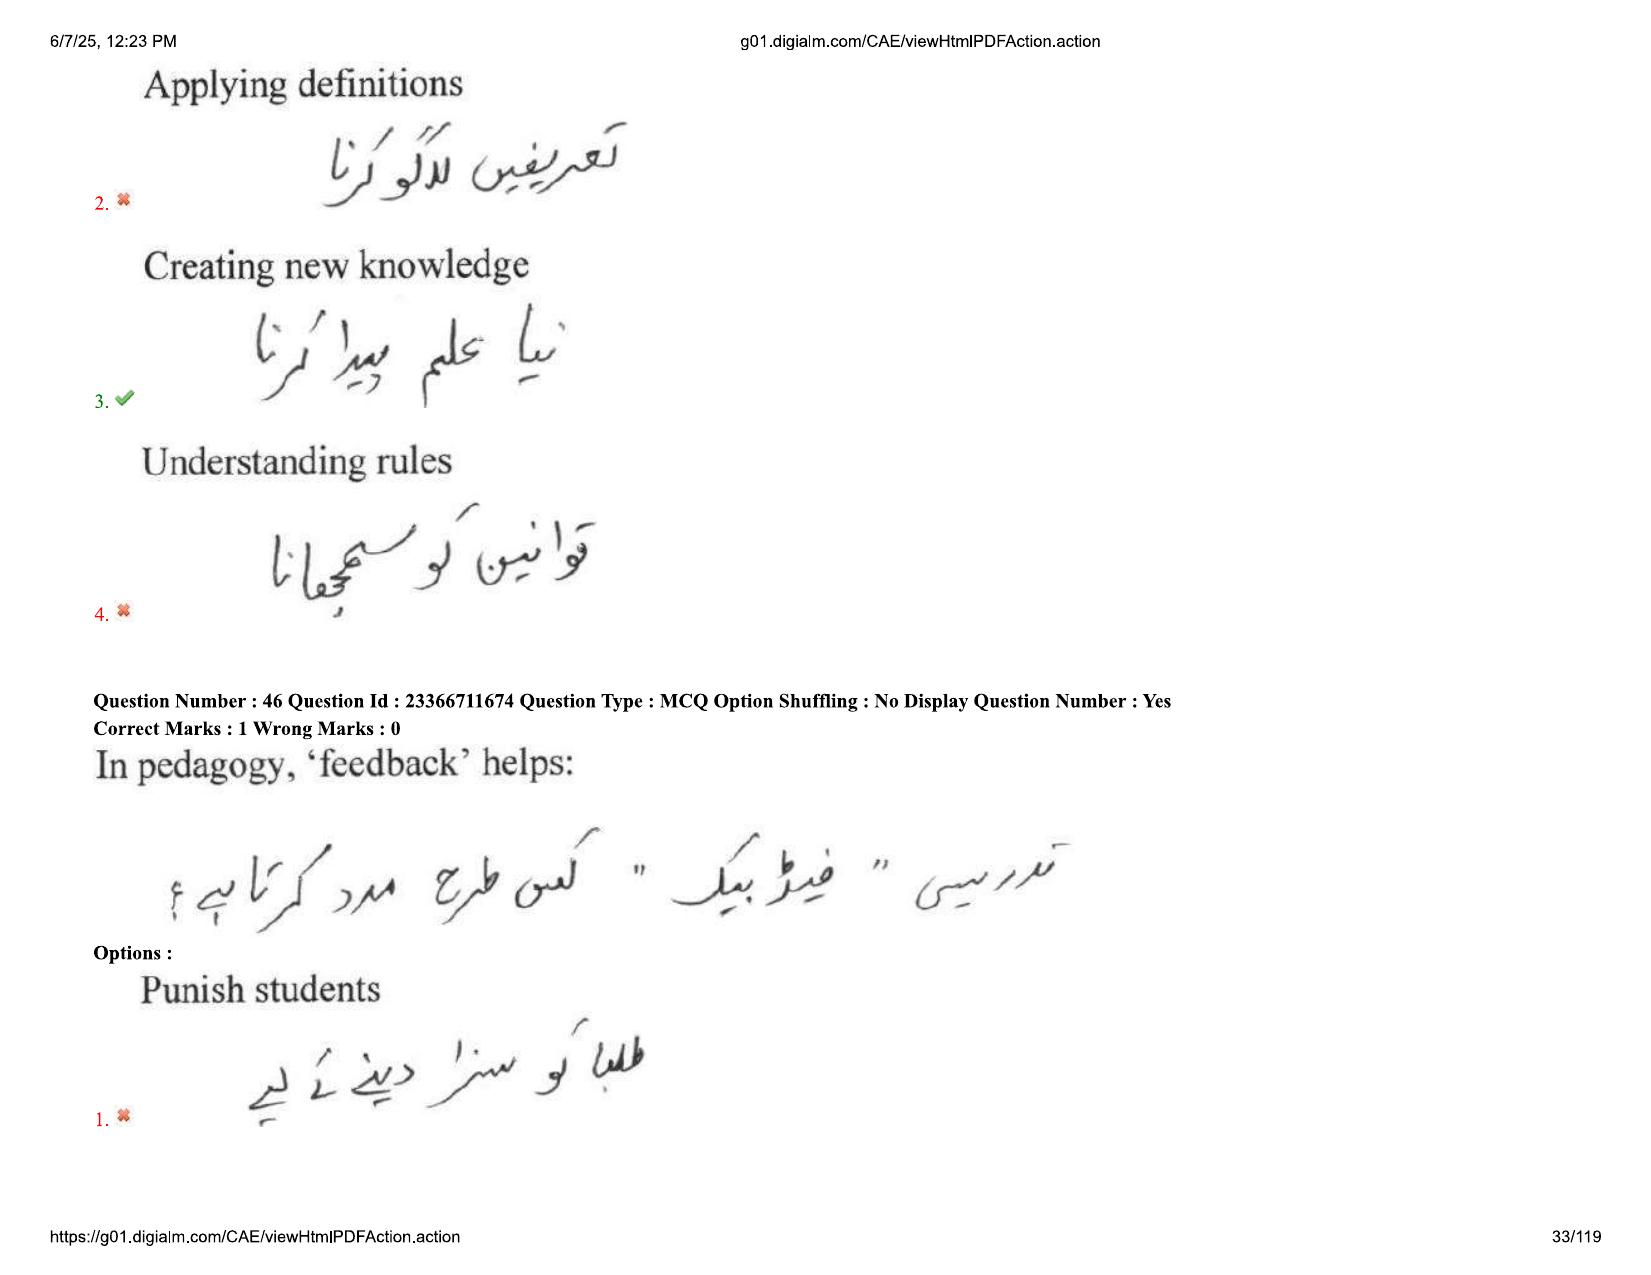 6/7/25, 12:23 PM
g01.digialm.com/CAE/viewHtmlPDFAction.action
Applying definitions
تعریفیں لاگو کرنا
2.
Creating new knowledge
نیا علم پیدا کرنا
3.
Understanding rules
قوانین کو سمجھانا
4.
Question Number : 46 Question Id : 23366711674 Question Type : MCQ Option Shuffling : No Display Question Number : Yes
Correct Marks : 1 Wrong Marks : 0
In pedagogy, ‘feedback’ helps:
تدریسی " فیڈ بیک " کس طرح مدد کرتا ہے ؟
Options :
Punish students
طلبا کو سزا دینے کے لیے
1.
https://g01.digialm.com/CAE/viewHtmlPDFAction.action
33/119